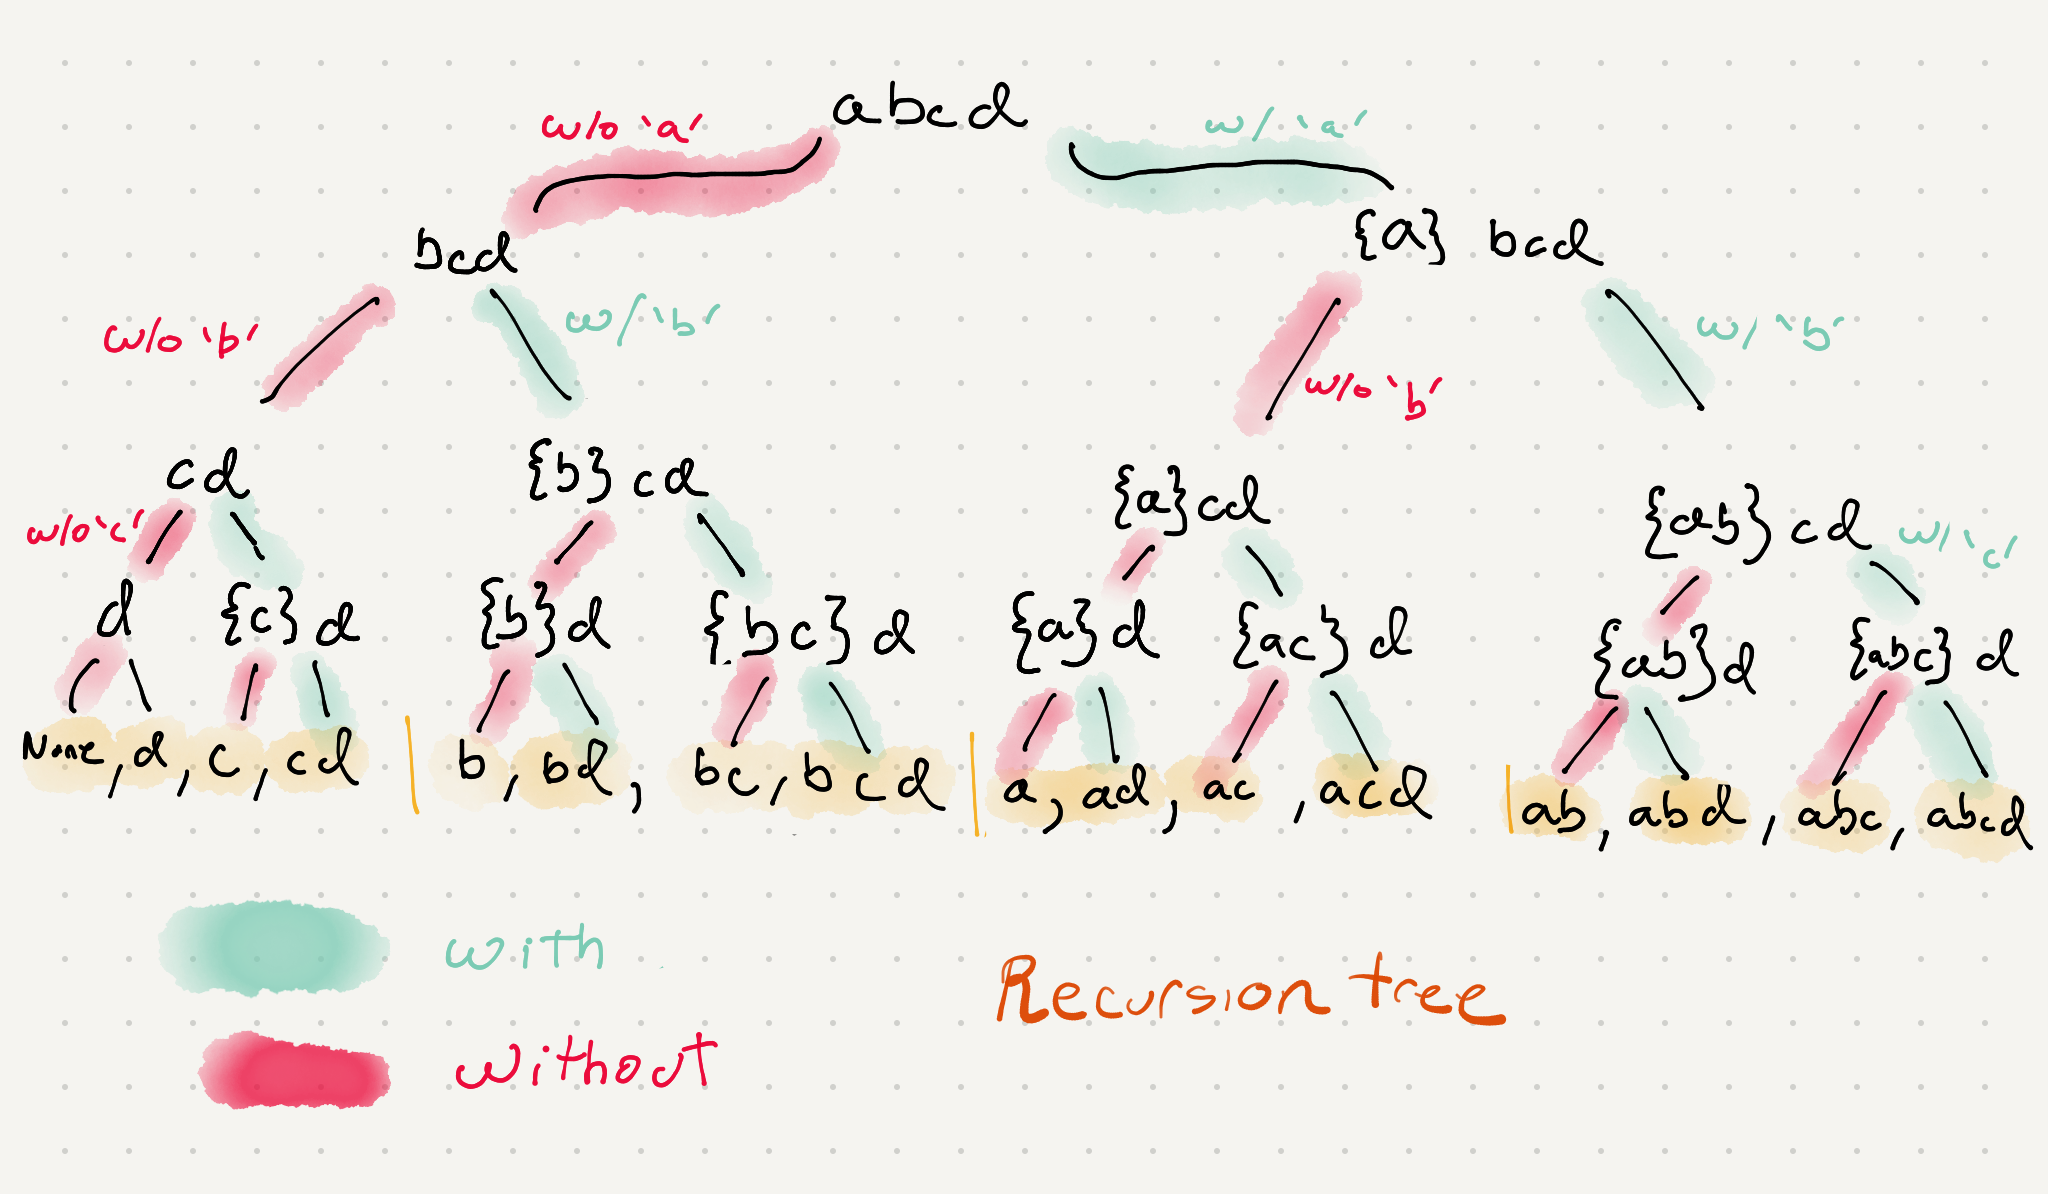 abcd
w/o 'a'
w/ 'a'
bcd
{a} bcd
w/o 'b'
w/ 'b'
w/o 'b'
w/ 'b'
cd
{b} cd
{a} cd
{ab} cd
w/o 'c'
w/ 'c'
d
{c} d
{b} d
{bc} d
{a} d
{ac} d
{ab} d
{abc} d
None, d, c, cd | b, bd, bc, bcd | a, ad, ac, acd | ab, abd, abc, abcd
with
Recursion tree
without